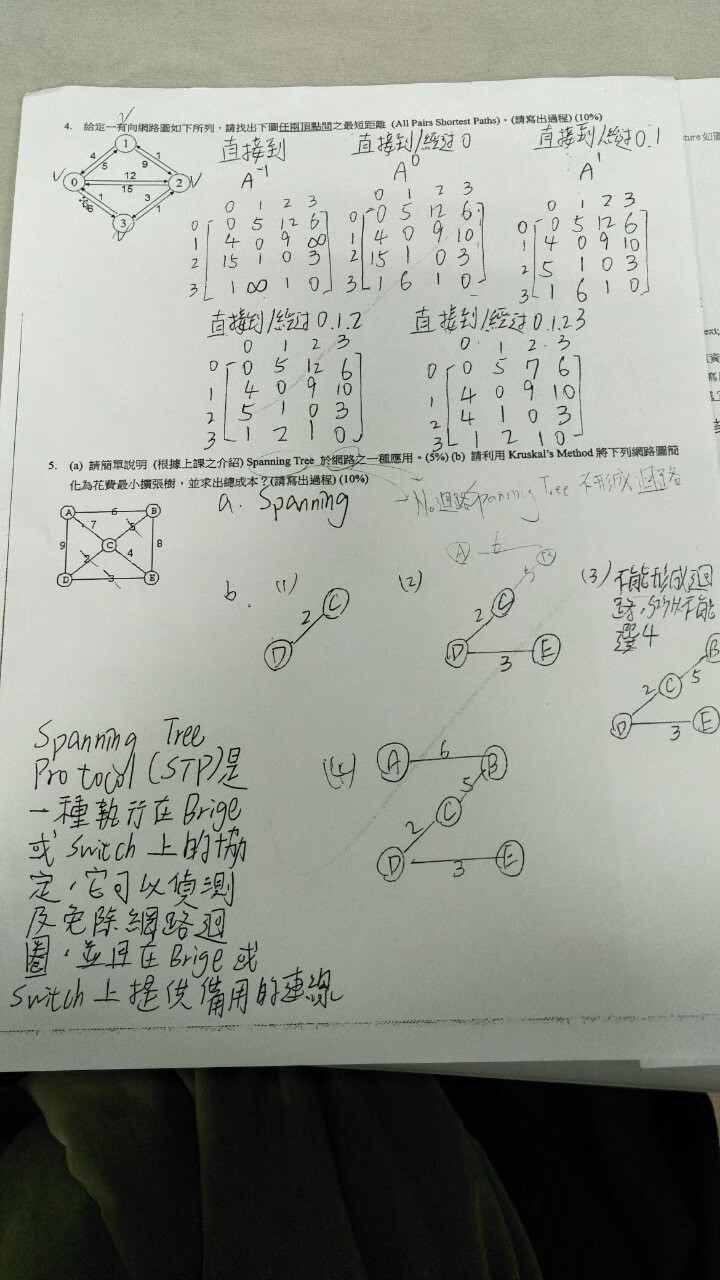 4. 給定一有向網路圖如下所列，請找出下圖任兩頂點間之最短距離 (All Pairs Shortest Paths)。(請寫出過程) (10%)
1
4 5 1 9
0 12 2
15
1 6 3 1
3
直接到
A⁻¹
0 1 2 3
0 0 5 12 6
1 4 0 9 ∞
2 15 1 0 3
3 1 ∞ 1 0
直接到/經过0
A⁰
0 1 2 3
0 0 5 12 6
1 4 0 9 10
2 15 1 0 3
3 1 6 1 0
直接到/經过0.1
A¹
0 1 2 3
0 0 5 12 6
1 4 0 9 10
2 5 1 0 3
3 1 6 1 0
直接到/經过0.1.2
0 1 2 3
0 0 5 12 6
1 4 0 9 10
2 5 1 0 3
3 1 2 1 0
直接到/經过0.1.2.3
0 1 2 3
0 0 5 7 6
1 4 0 9 10
2 4 1 0 3
3 1 2 1 0
5. (a) 請簡單說明 (根據上課之介紹) Spanning Tree 於網路之一種應用。(5%) (b) 請利用 Kruskal's Method 將下列網路圖簡
化為花費最小擴張樹，並求出總成本？(請寫出過程) (10%)
A 6 B
7 5
9 C 8
2 4
D 3 E
a. Spanning
No迴路 Spanning Tree 不形成迴路
b. (1)
C
2
D
(2)
A 6
5
C
2
D 3 E
(3) 不能形成迴
路，所以不能
選4
B
C 5
2
D 3 E
(4)
A 6 B
5
C
2
D 3 E
Spanning Tree
Protocol (STP)是
一種執行在Brige
或 Switch 上的協
定，它可以偵測
及免除網路迴
圈，並且在Brige或
Switch上提供備用的連線